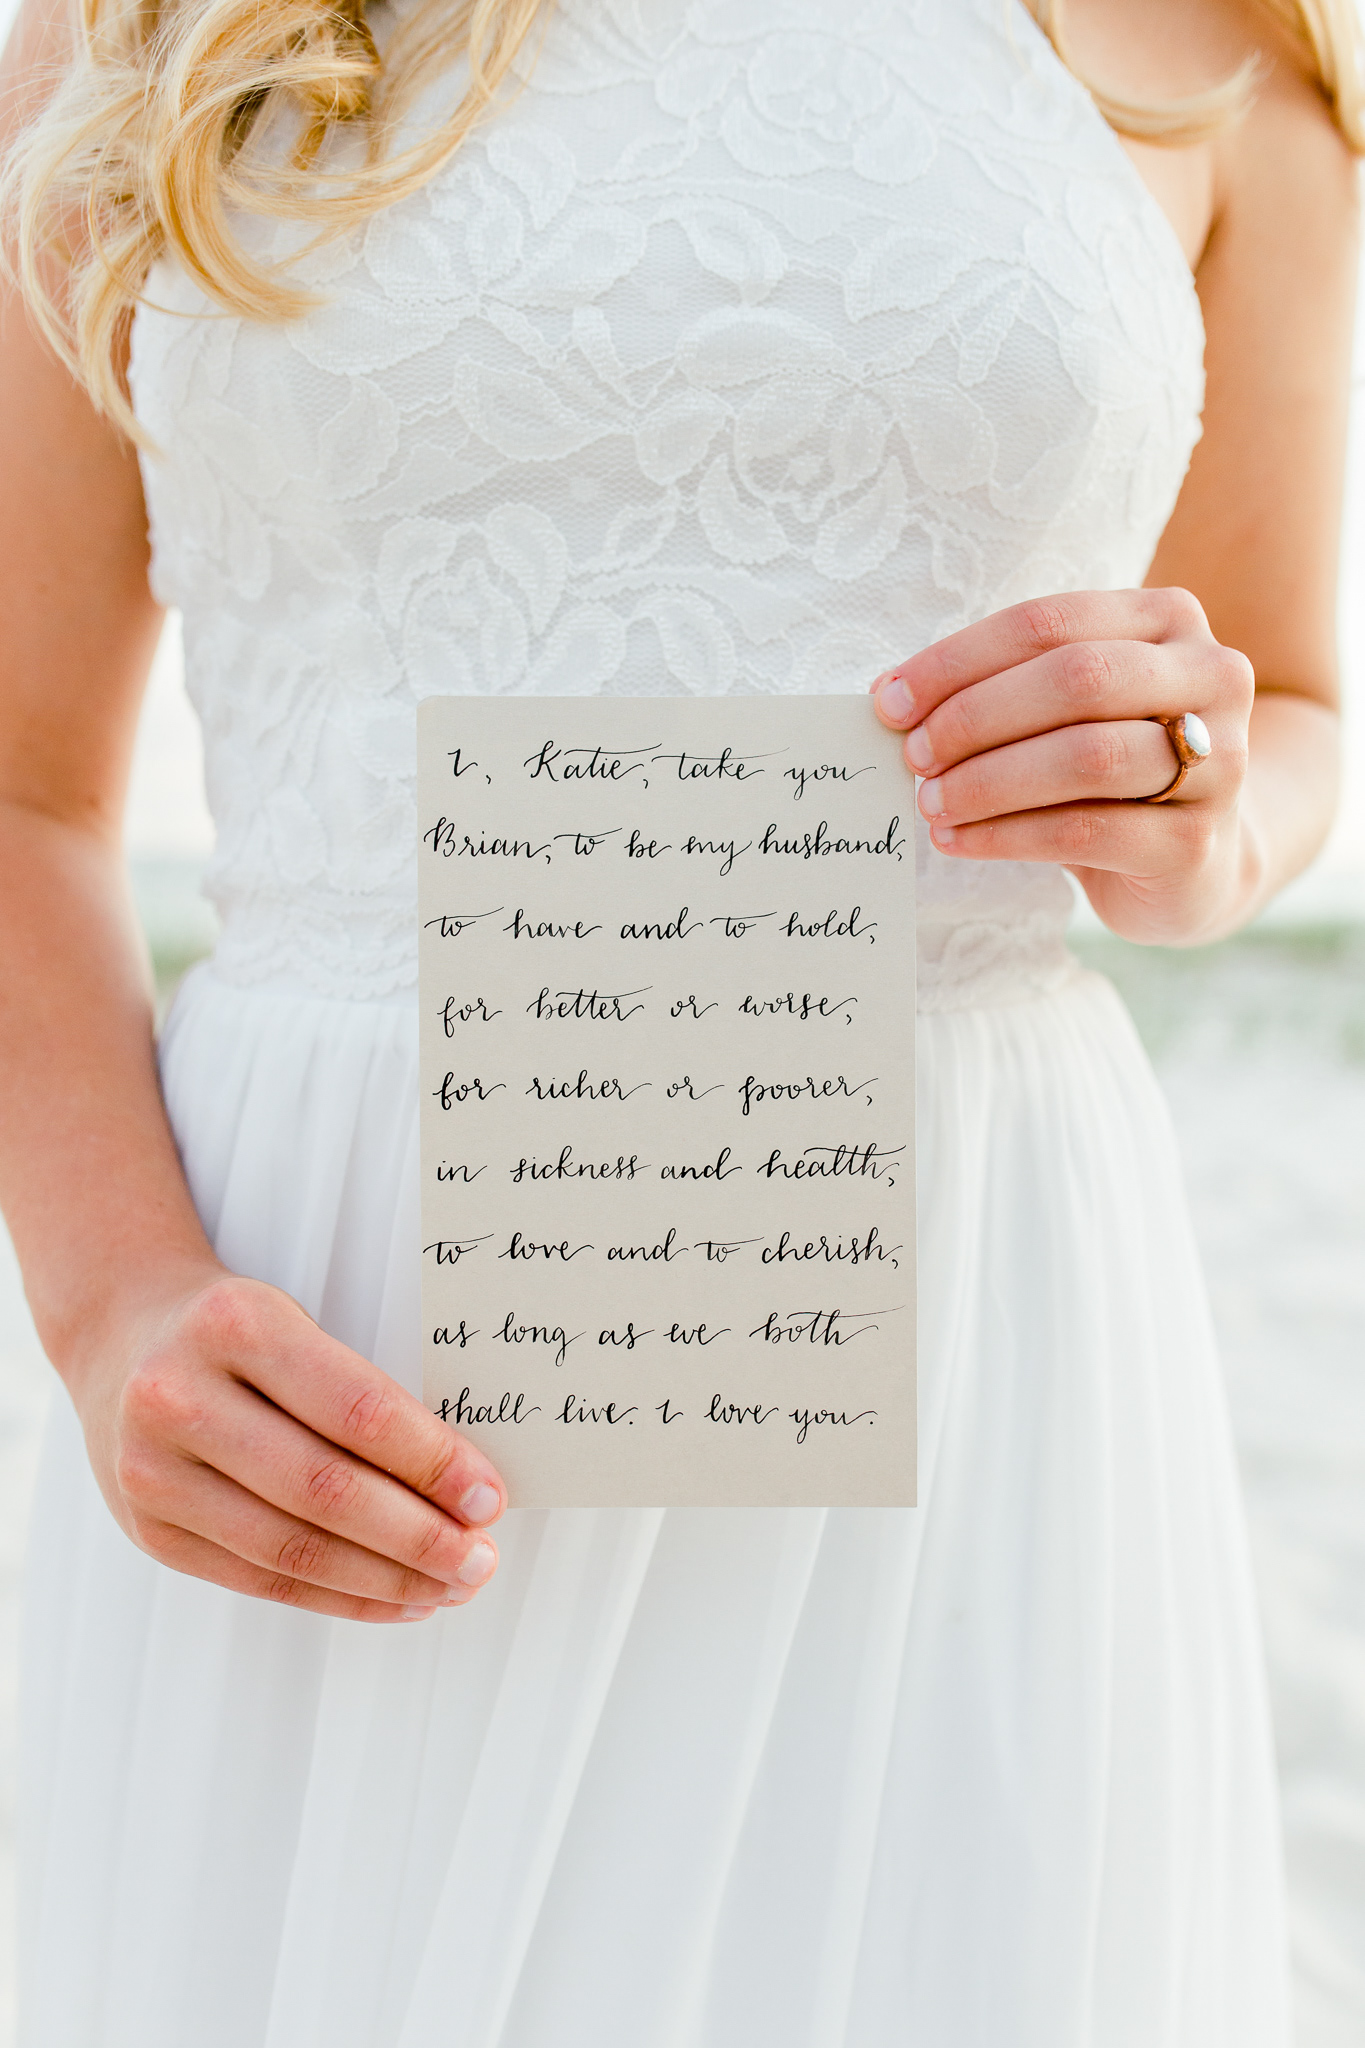 I, Katie, take you
Brian, to be my husband,
to have and to hold,
for better or worse,
for richer or poorer,
in sickness and health,
to love and to cherish,
as long as we both
shall live. I love you.